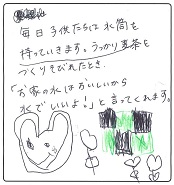 毎日子供たちは水筒を
持っていきます。うっかり麦茶を
つくりそびれたとき、
「お家の水はおいしいから
水でいいよ!」と言ってくれます。